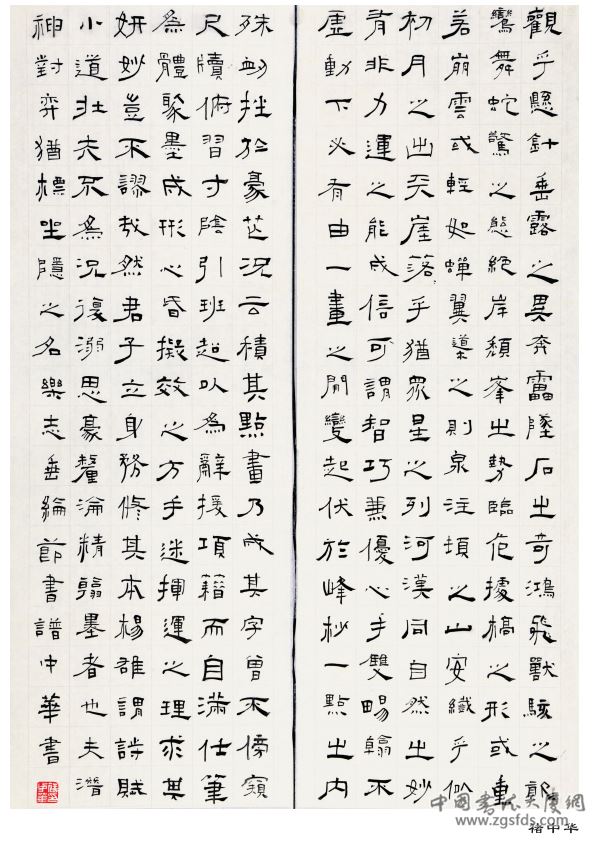 觀乎懸針垂露之異奔雷墜石之奇鴻飛獸駭之
鸞舞蛇驚之態絕岸頹峯之勢臨危據槁之形或重
若崩雲或輕如蟬翼導之則泉注頓之山安纖乎似
初月之出天崖落乎猶眾星之列河漢同自然之妙
有非力運之能成信可謂智巧兼優心手雙暢翰不
虛動下必有由一畫之間變起伏於峰杪一點之內
殊衂挫於豪芒況云積其點畫乃成其字曾不傍窺
尺牘俯習寸陰引班超以為辭援項籍而自滿任筆
為體聚墨成形心昏擬效之方手迷揮運之理求其
妍妙豈不謬哉然君子立身務修其本楊雄謂詩賦
小道壯夫不為況復溺思豪釐淪精翰墨者也夫潛
神對弈猶標坐隱之名樂志垂綸節書譜中華書
中國書法大度網
www.zgsfds.com
褚中华